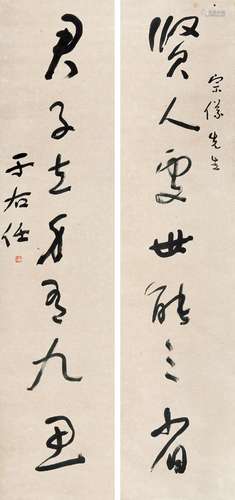 宗儀先生
賢人處世能三省
君子立身有九思
于右任